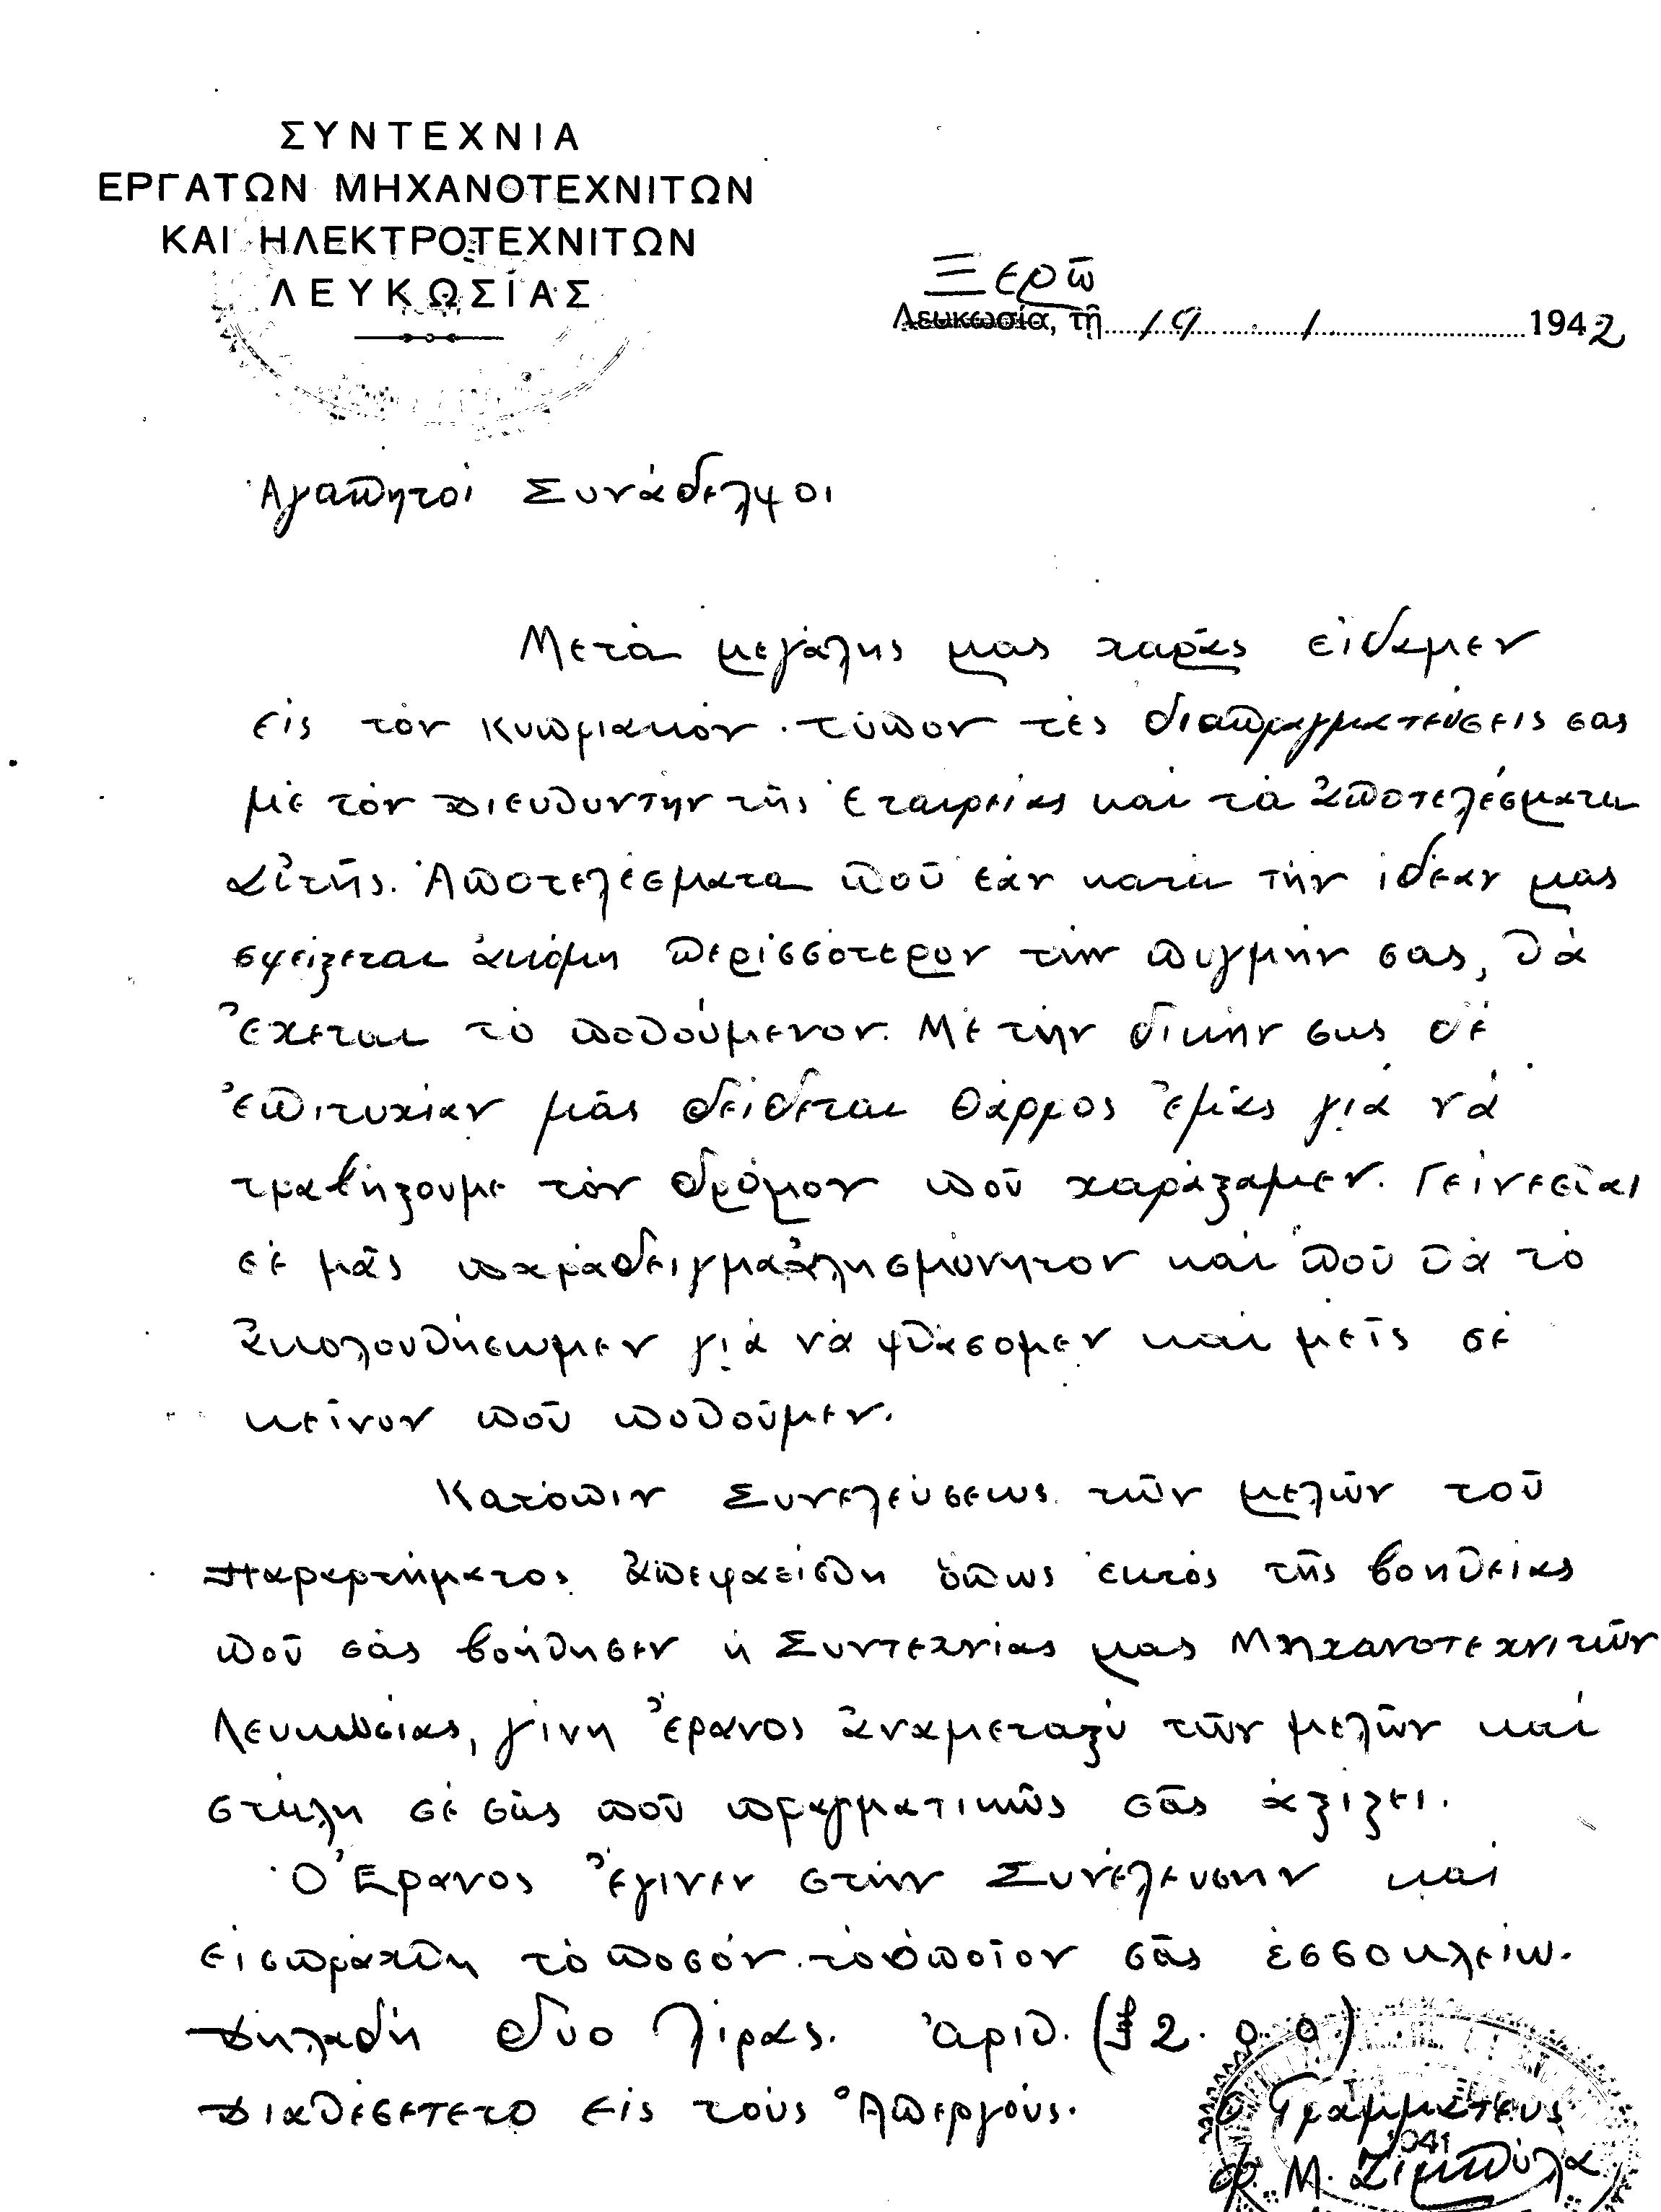 ΣΥΝΤΕΧΝΙΑ
ΕΡΓΑΤΩΝ ΜΗΧΑΝΟΤΕΧΝΙΤΩΝ
ΚΑΙ ΗΛΕΚΤΡΟΤΕΧΝΙΤΩΝ
ΛΕΥΚΩΣΙΑΣ
Ξερῶ
Λευκωσία, τῇ 19 . 1 . 1942
Ἀγαπητοί Συνάδελφοι
Μετά μεγάλης μας χαρᾶς εἴδαμεν
εἰς τόν Κυπριακόν τύπον τές διαπραγματεύσεις σας
μέ τόν Διευθυντήν τῆς Ἑταιρείας καί τά ἀποτελέσματα
αὐτῆς. Ἀποτελέσματα ποῦ ἐάν κατά τήν ἰδέαν μας
σφείξεται ἀκόμη περισσότερον τήν πυγμήν σας, θά
ἔχεται τό ποθούμενον. Μέ τήν δικήν σας δέ
ἐπιτυχίαν μᾶς δείδεται θάρρος ἐμᾶς γιά νά
τραβήξουμε τόν δρόμον ποῦ χαράξαμεν. Γείνεσται
σέ μᾶς παράδειγμα ἀλησμόνητον καί ποῦ θά τό
ἀκολουθήσωμεν γιά νά φθάσομεν καί μεῖς σέ
κεῖνον ποῦ ποθοῦμεν.
Κατόπιν Συνελεύσεως τῶν μελῶν τοῦ
Παραρτήματος ἀπεφασίσθη ὅπως ἐκτός τῆς βοηθείας
ποῦ σᾶς βοήθησεν ἡ Συντεχνίας μας Μηχανοτεχνιτῶν
Λευκωσίας, γίνη ἔρανος ἀναμεταξύ τῶν μελῶν καί
στήλη σέ σᾶς ποῦ πραγματικῶς σᾶς ἀξίζει.
Ὁ Ἔρανος ἔγινεν στήν Συνέλευσην καί
εἰσπράχθη τό ποσόν τό ὁποῖον σᾶς ἐσσοκλείω.
Δηλαδή δυο λίρας. ἀριθ. (£2. 0. 0)
Διαθέσετετο εἰς τούς Ἀπεργούς.
Ὁ Γραμματεύς
1941
Μ. Ζιμπύλα